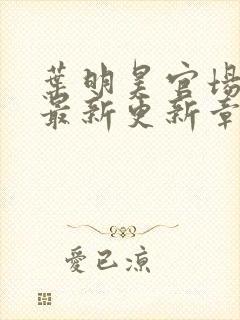 葉明昊官場
最新更新章
愛已涼